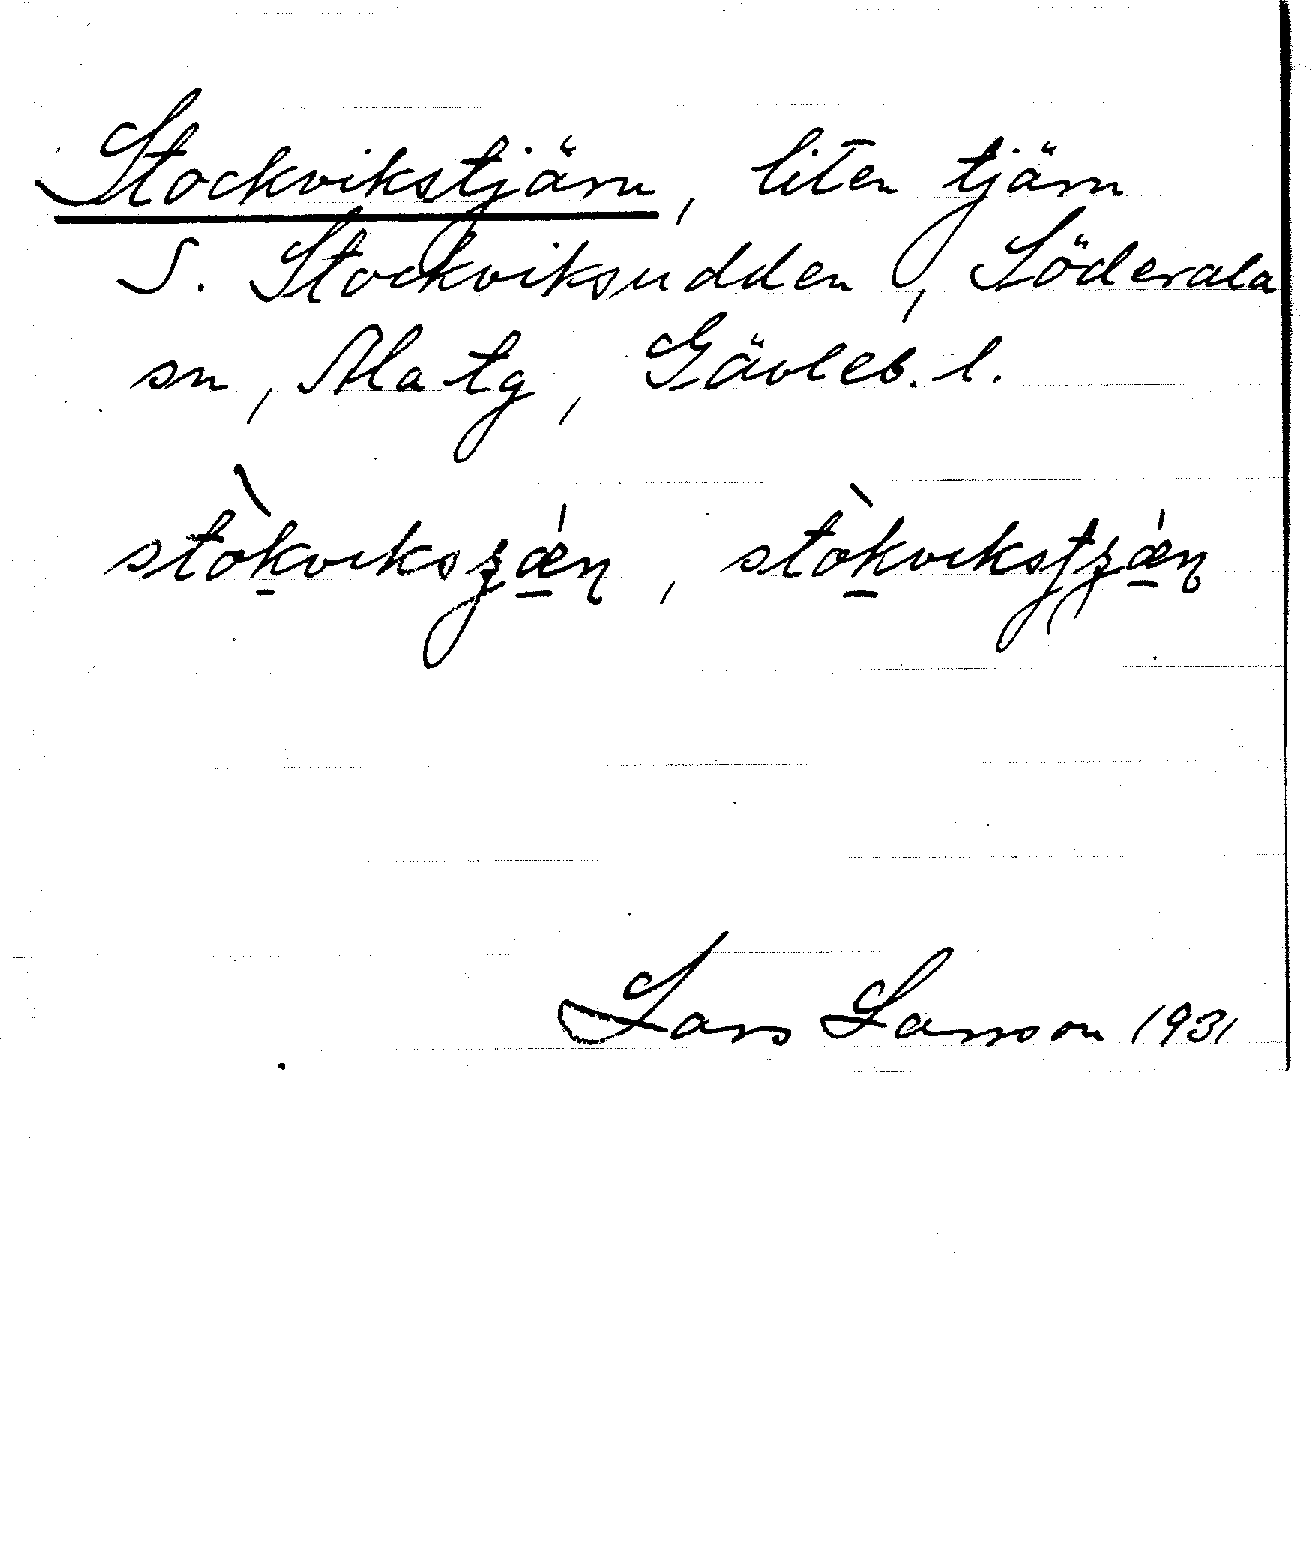 Stockvikstjärn, liten tjärn
S. Stockviksudden, Söderala
sn, Ala tg, Gävleb. l.
Lars Larsson 1931